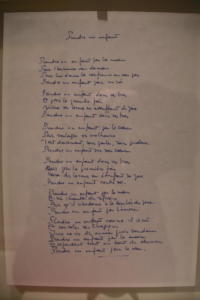 Prendre un enfant
Prendre un enfant par la main
Pour l'emmener vers demain
Pour lui donner la confiance en son pas
Prendre un enfant pour un roi
Prendre un enfant dans ses bras
Et pour la première fois
Sécher ses larmes en étouffant de joie
Prendre un enfant dans ses bras
Prendre un enfant par le cœur
Pour soulager ses malheurs
Tout doucement, sans parler, sans pudeur
Prendre un enfant sur son cœur
Prendre un enfant dans ses bras
Mais pour la première fois
Verser des larmes en étouffant sa joie
Prendre un enfant contre soi
Prendre un enfant par la main
Et lui chanter des refrains
Prendre un enfant par l'amour
Prendre un enfant comme il vient
Et consoler ses chagrins
Prendre un enfant par la main
En regardant tout au bout du chemin
Prendre un enfant pour le sien